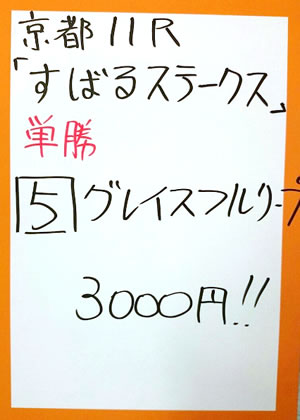 京都11R
「すばるステークス」
単勝
5 グレイスフルリープ
3000円!!